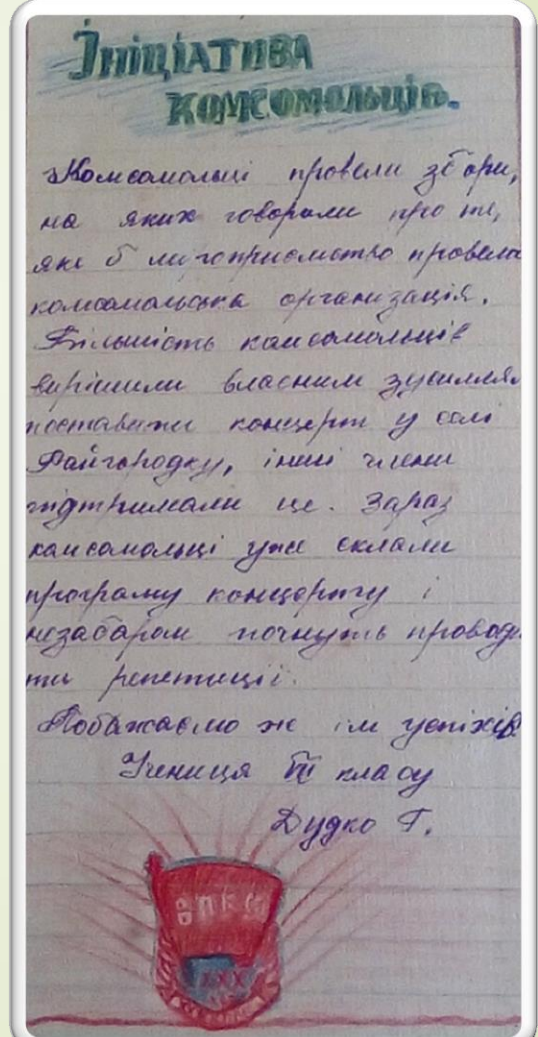 Ініціатива
комсомольців.
Комсомольці провели збори,
на яких говорили про те,
яке б мироприємство провела
комсомольська організація.
Більшість комсомольців
вирішили власним зусиллям
поставити концерт у селі
Райгородку, інші члени
підтримали це. Зараз
комсомольці уже склали
програму концерту і
незабаром почнуть проводи
ти репетиції.
Побажаємо ж їм успіхів.
Учениця класу
Дудко Г.